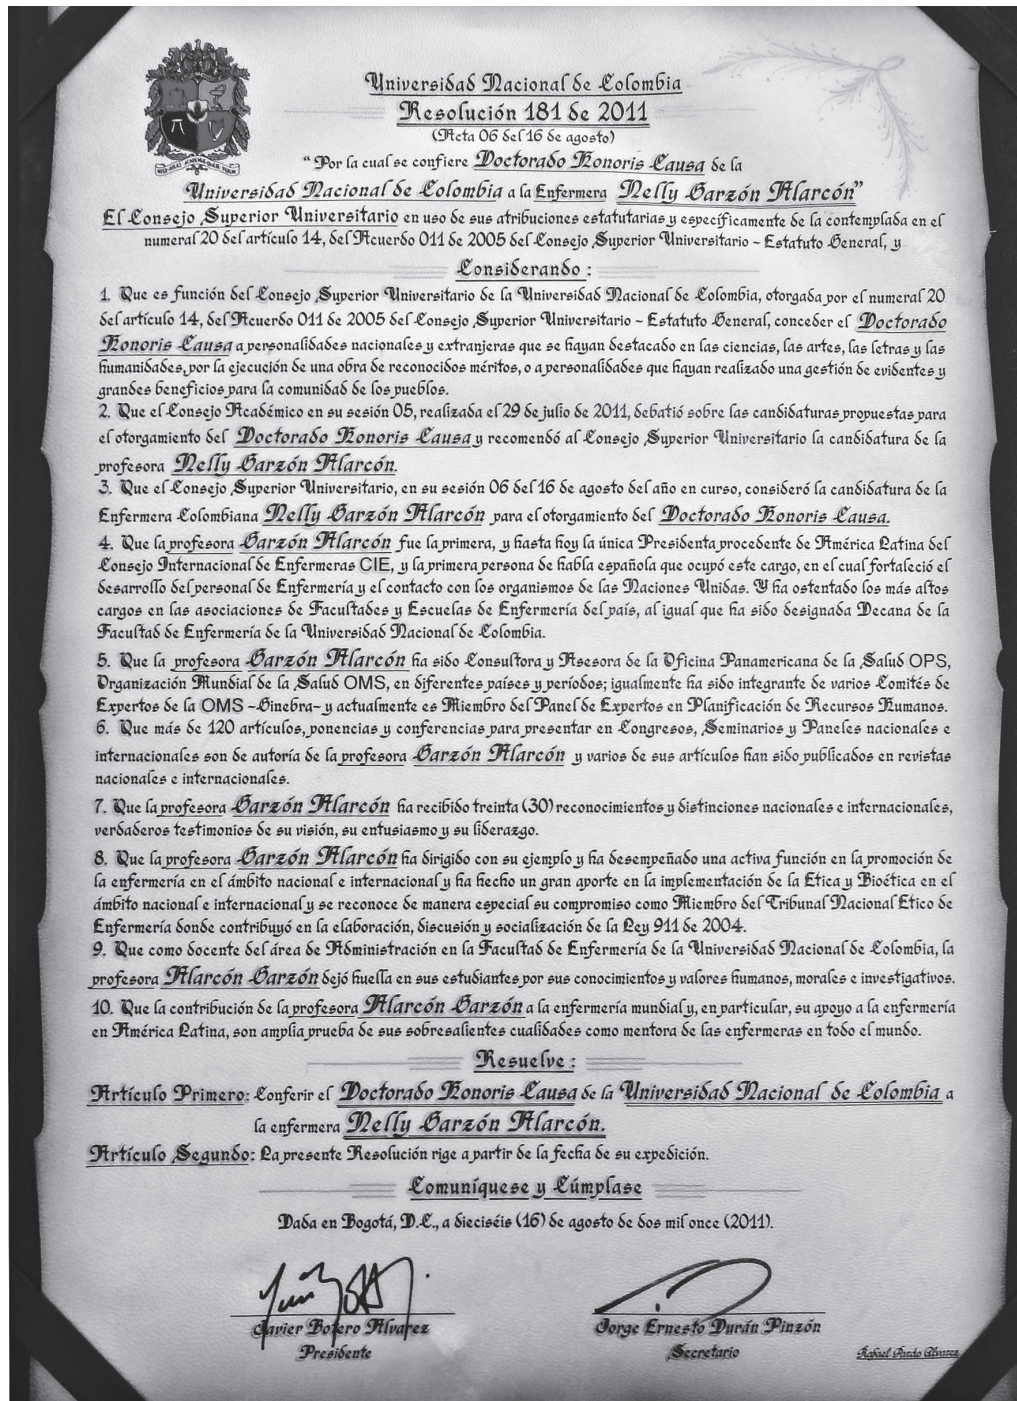 Universidad Nacional de Colombia
Resolución 181 de 2011
(Acta 06 del 16 de agosto)
"Por la cual se confiere Doctorado Honoris Causa de la
Universidad Nacional de Colombia a la Enfermera Nelly Garzón Alarcón"
El Consejo Superior Universitario en uso de sus atribuciones estatutarias y específicamente de la contemplada en el
numeral 20 del artículo 14, del Acuerdo 011 de 2005 del Consejo Superior Universitario - Estatuto General, y
Considerando :
1. Que es función del Consejo Superior Universitario de la Universidad Nacional de Colombia, otorgada por el numeral 20
del artículo 14, del Acuerdo 011 de 2005 del Consejo Superior Universitario - Estatuto General, conceder el Doctorado
Honoris Causa a personalidades nacionales y extranjeras que se hayan destacado en las ciencias, las artes, las letras y las
humanidades, por la ejecución de una obra de reconocidos méritos, o a personalidades que hayan realizado una gestión de evidentes y
grandes beneficios para la comunidad de los pueblos.
2. Que el Consejo Académico en su sesión 05, realizada el 29 de julio de 2011, debatió sobre las candidaturas propuestas para
el otorgamiento del Doctorado Honoris Causa y recomendó al Consejo Superior Universitario la candidatura de la
profesora Nelly Garzón Alarcón.
3. Que el Consejo Superior Universitario, en su sesión 06 del 16 de agosto del año en curso, consideró la candidatura de la
Enfermera Colombiana Nelly Garzón Alarcón para el otorgamiento del Doctorado Honoris Causa.
4. Que la profesora Garzón Alarcón fue la primera, y hasta hoy la única Presidenta procedente de América Latina del
Consejo Internacional de Enfermeras CIE, y la primera persona de habla española que ocupó este cargo, en el cual fortaleció el
desarrollo del personal de Enfermería y el contacto con los organismos de las Naciones Unidas. Y ha ostentado los más altos
cargos en las asociaciones de Facultades y Escuelas de Enfermería del país, al igual que ha sido designada Decana de la
Facultad de Enfermería de la Universidad Nacional de Colombia.
5. Que la profesora Garzón Alarcón ha sido Consultora y Asesora de la Oficina Panamericana de la Salud OPS,
Organización Mundial de la Salud OMS, en diferentes países y períodos; igualmente ha sido integrante de varios Comités de
Expertos de la OMS -Ginebra- y actualmente es Miembro del Panel de Expertos en Planificación de Recursos Humanos.
6. Que más de 120 artículos, ponencias y conferencias para presentar en Congresos, Seminarios y Paneles nacionales e
internacionales son de autoría de la profesora Garzón Alarcón y varios de sus artículos han sido publicados en revistas
nacionales e internacionales.
7. Que la profesora Garzón Alarcón ha recibido treinta (30) reconocimientos y distinciones nacionales e internacionales,
verdaderos testimonios de su visión, su entusiasmo y su liderazgo.
8. Que la profesora Garzón Alarcón ha dirigido con su ejemplo y ha desempeñado una activa función en la promoción de
la enfermería en el ámbito nacional e internacional y ha hecho un gran aporte en la implementación de la Etica y Bioética en el
ámbito nacional e internacional y se reconoce de manera especial su compromiso como Miembro del Tribunal Nacional Etico de
Enfermería donde contribuyó en la elaboración, discusión y socialización de la Ley 911 de 2004.
9. Que como docente del área de Administración en la Facultad de Enfermería de la Universidad Nacional de Colombia, la
profesora Alarcón Garzón dejó huella en sus estudiantes por sus conocimientos y valores humanos, morales e investigativos.
10. Que la contribución de la profesora Alarcón Garzón a la enfermería mundial y, en particular, su apoyo a la enfermería
en América Latina, son amplia prueba de sus sobresalientes cualidades como mentora de las enfermeras en todo el mundo.
Resuelve :
Artículo Primero: Conferir el Doctorado Honoris Causa de la Universidad Nacional de Colombia a
la enfermera Nelly Garzón Alarcón.
Artículo Segundo: La presente Resolución rige a partir de la fecha de su expedición.
Comuníquese y Cúmplase
Dada en Bogotá, D.C., a dieciséis (16) de agosto de dos mil once (2011).
Javier Botero Alvarez
Presidente
Jorge Ernesto Durán Pinzón
Secretario
Rafael Pardo Alvarez